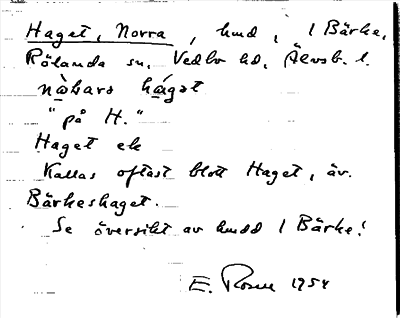 Haget, Norra, hmd, 1 Bärke,
Rölanda sn, Vedbo hd, Älvsb. l.
nò̱hars há̱gət
"på H."
Haget ek
Kallas oftast blott Haget, äv.
Bärkeshaget.
Se översikt av hmdd 1 Bärke!
E. Rosell 1954